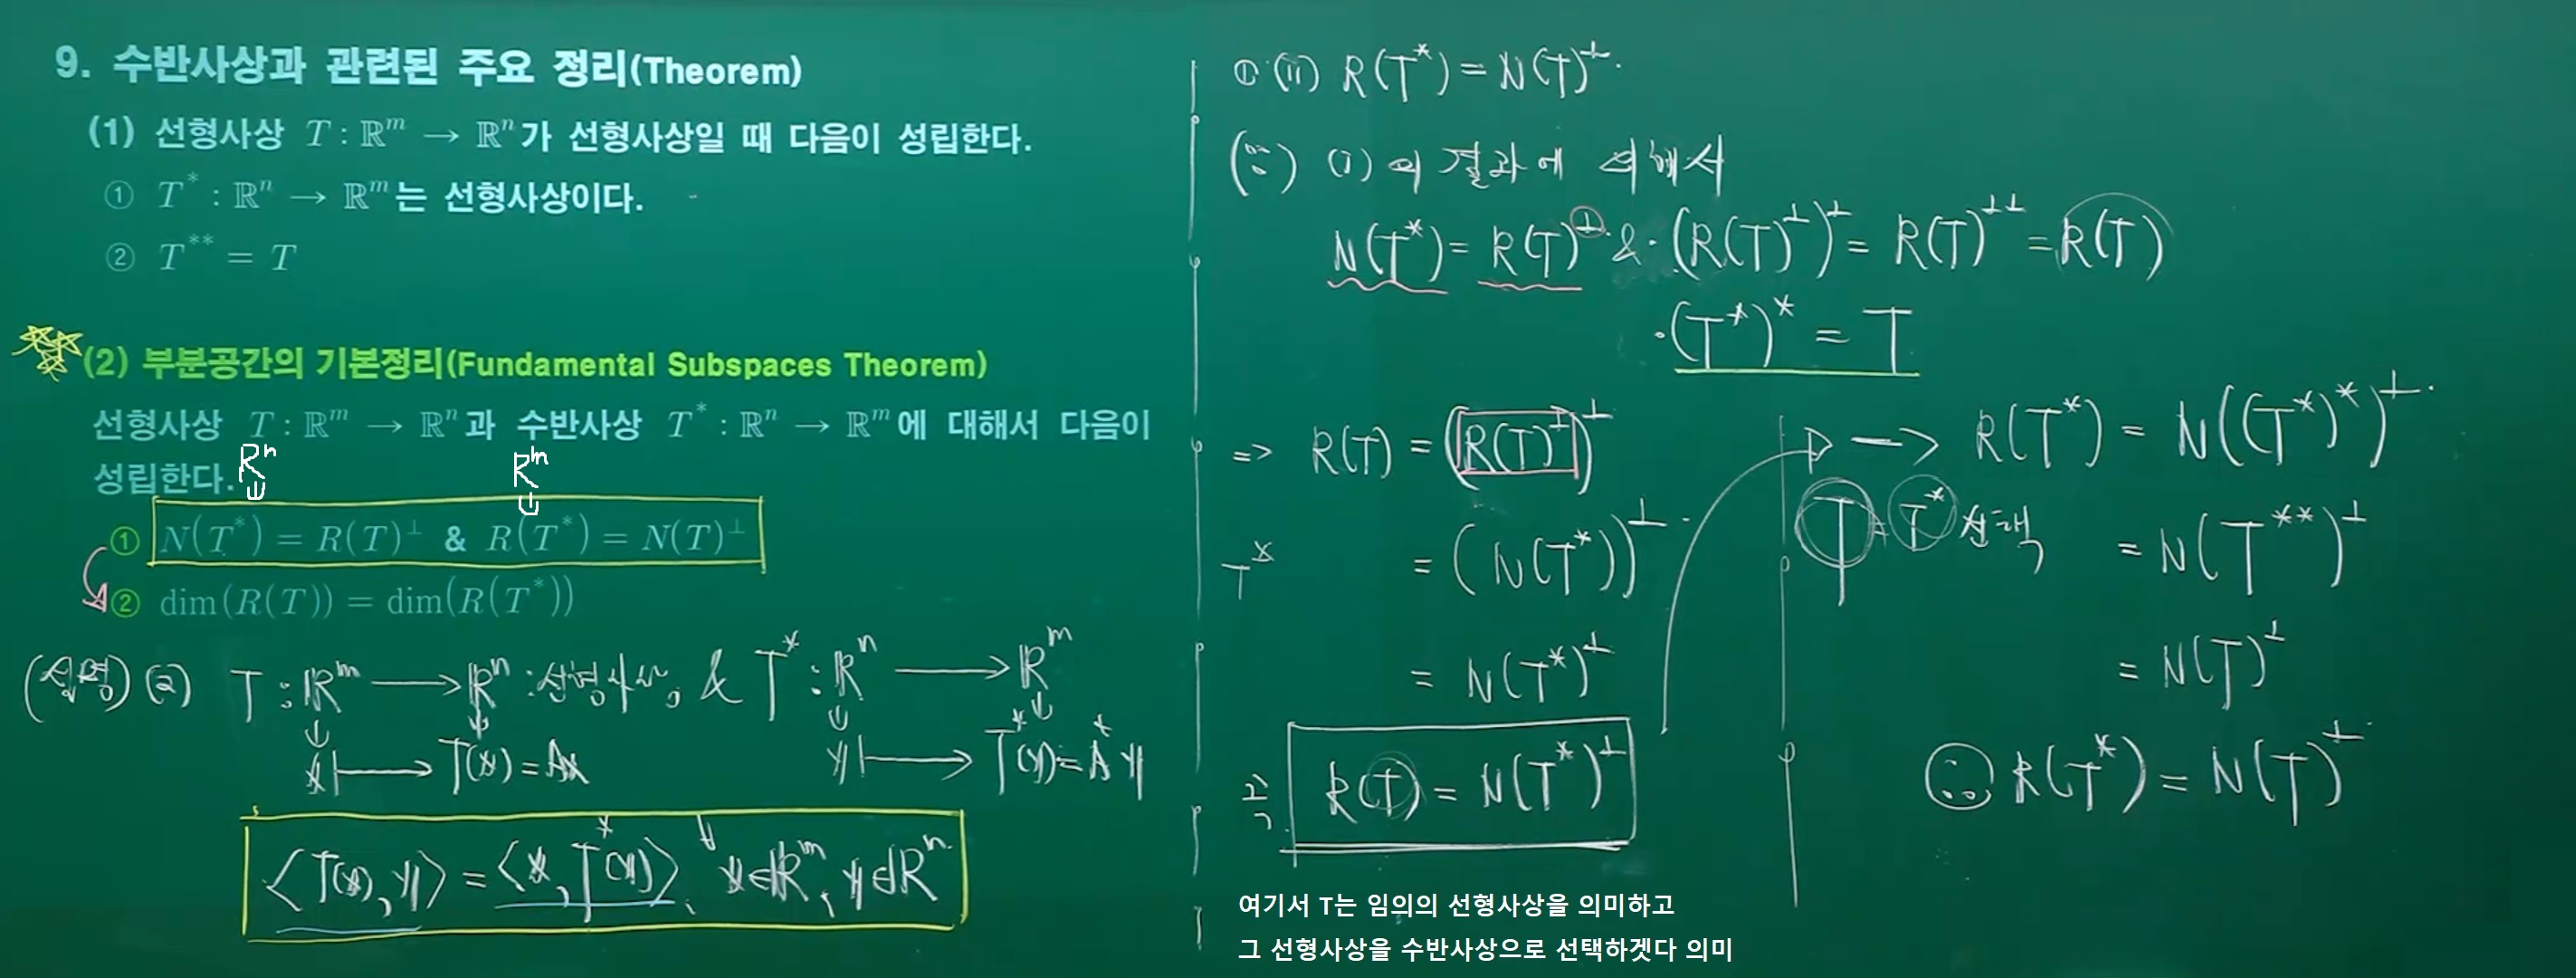 9. 수반사상과 관련된 주요 정리(Theorem)
(1) 선형사상 T : ℝᵐ → ℝⁿ가 선형사상일 때 다음이 성립한다.
① T* : ℝⁿ → ℝᵐ는 선형사상이다.
② T** = T
(2) 부분공간의 기본정리(Fundamental Subspaces Theorem)
선형사상 T : ℝᵐ → ℝⁿ과 수반사상 T* : ℝⁿ → ℝᵐ에 대해서 다음이
성립한다.
Rⁿ Rᵐ
① N(T*) = R(T)^⊥ & R(T*) = N(T)^⊥
② dim(R(T)) = dim(R(T*))
(설명) (2) T : ℝᵐ → ℝⁿ : 선형사상, & T* : ℝⁿ → ℝᵐ
x ↦ T(x) = Ax y ↦ T*(y) = A*y
⟨T(x), y⟩ = ⟨x, T*(y)⟩, ∀x∈ℝᵐ, y∈ℝⁿ
① (ii) R(T*) = N(T)^⊥.
(∵) (i)의 결과에 의해서
N(T*) = R(T)^⊥ & · (R(T)^⊥)^⊥ = R(T)^⊥⊥ = R(T)
· (T*)* = T
=> R(T) = (R(T)^⊥)^⊥
T* = (N(T*))^⊥
= N(T*)^⊥
즉, R(T) = N(T*)^⊥
→ R(T*) = N((T*)*)^⊥
T = T* 선택 = N(T**)^⊥
= N(T)^⊥
∴ R(T*) = N(T)^⊥
여기서 T는 임의의 선형사상을 의미하고
그 선형사상을 수반사상으로 선택하겟다 의미